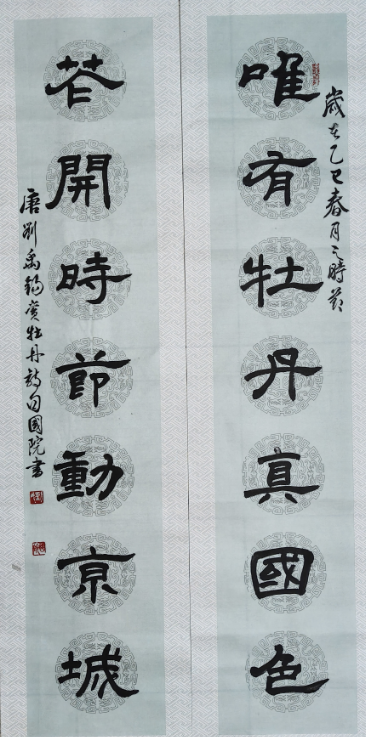 歲在乙巳春月之時節
唯有牡丹真國色
花開時節動京城
唐劉禹錫賞牡丹詩句國院書